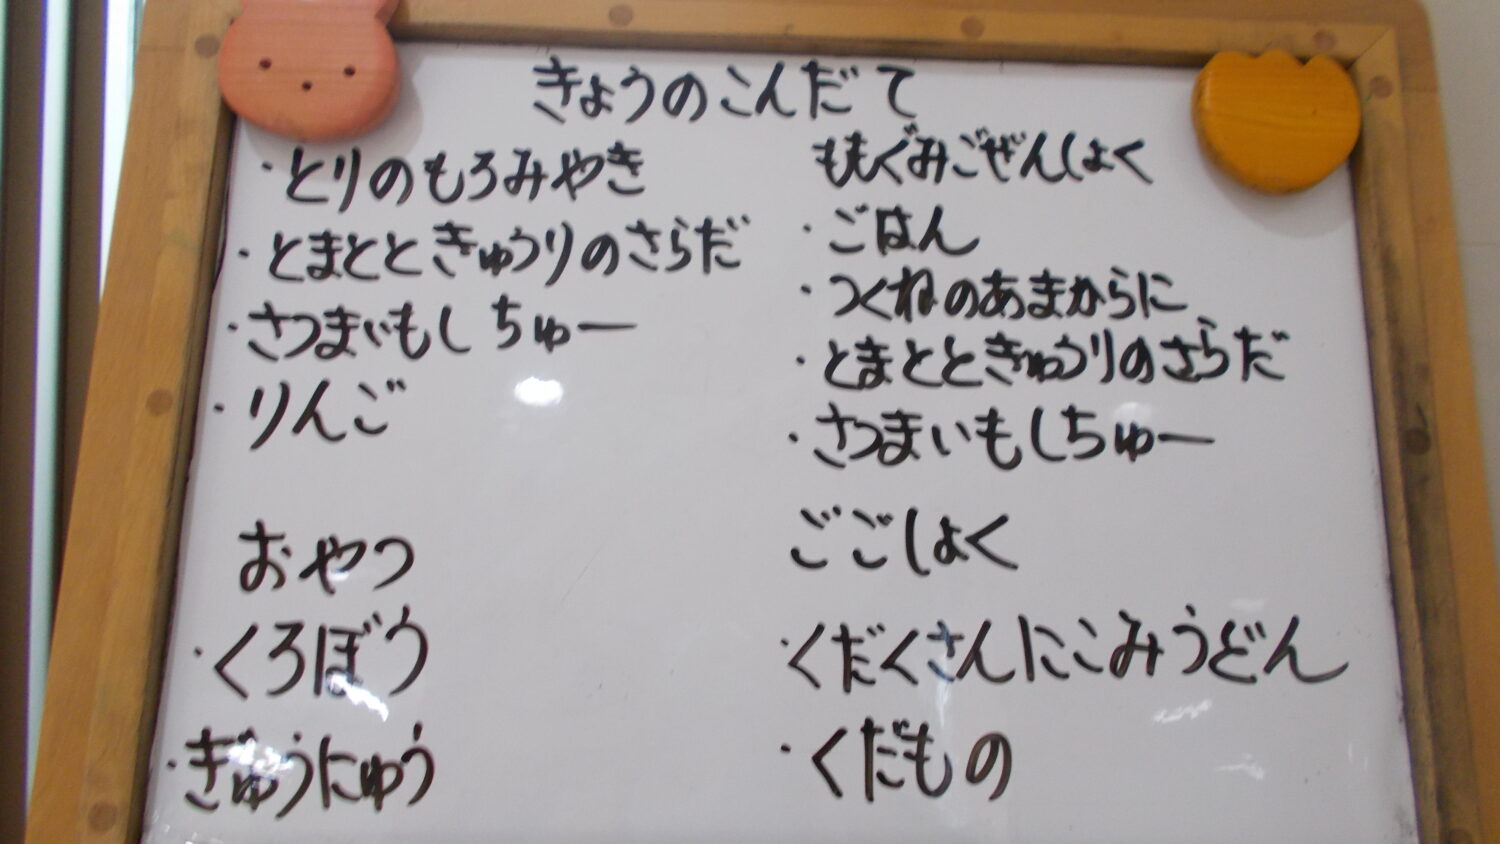 きょうのこんだて
・とりのもろみやき
・とまとときゅうりのさらだ
・さつまいもしちゅー
・りんご
おやつ
・くろぼう
・ぎゅうにゅう
ももぐみごぜんしょく
・ごはん
・つくねのあまからに
・とまとときゅうりのさらだ
・さつまいもしちゅー
ごごしょく
・くだくさんにこみうどん
・くだもの